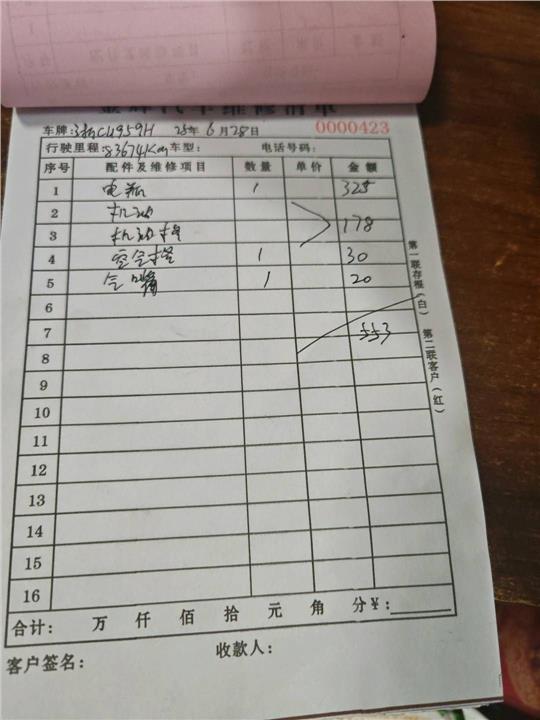 车维修清单
车牌: 25年6月28日 0000423
行驶里程:83674Km 车型: 电话号码:
序号 配件及维修项目 数量 单价 金额
1 电瓶 1 325
2 机油 178
3 机油格
4 空气格 1 30
5 1 20
6
7 553
8
9
10
11
12
13
14
15
16
合计: 万 仟 佰 拾 元 角 分 ¥:
客户签名: 收款人:
第一联存根(白) 第二联客户(红)